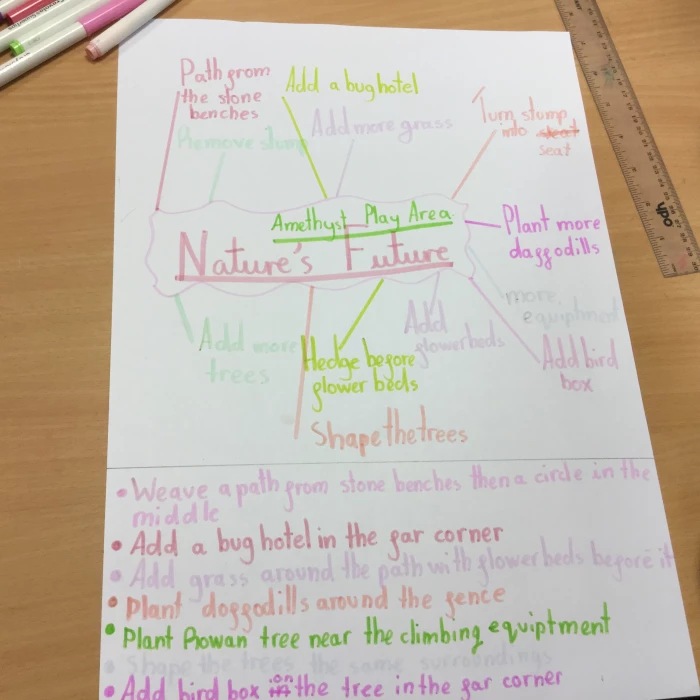 Path from
the stone
benches
Add a bug hotel
Add more grass
Remove stump
Turn stump
into seat
seat
Amethyst Play Area
Nature's Future
Plant more
daffodills
more
equiptment
Add more
trees
Hedge before
flower beds
Add
flowerbeds
Add bird
box
Shape the trees
• Weave a path from stone benches then a circle in the
middle
• Add a bug hotel in the far corner
• Add grass around the path with flowerbeds before it
• Plant doffodills around the fence
• Plant Rowan tree near the climbing equiptment
• Shape the trees the same surroundings
• Add bird box on the tree in the far corner